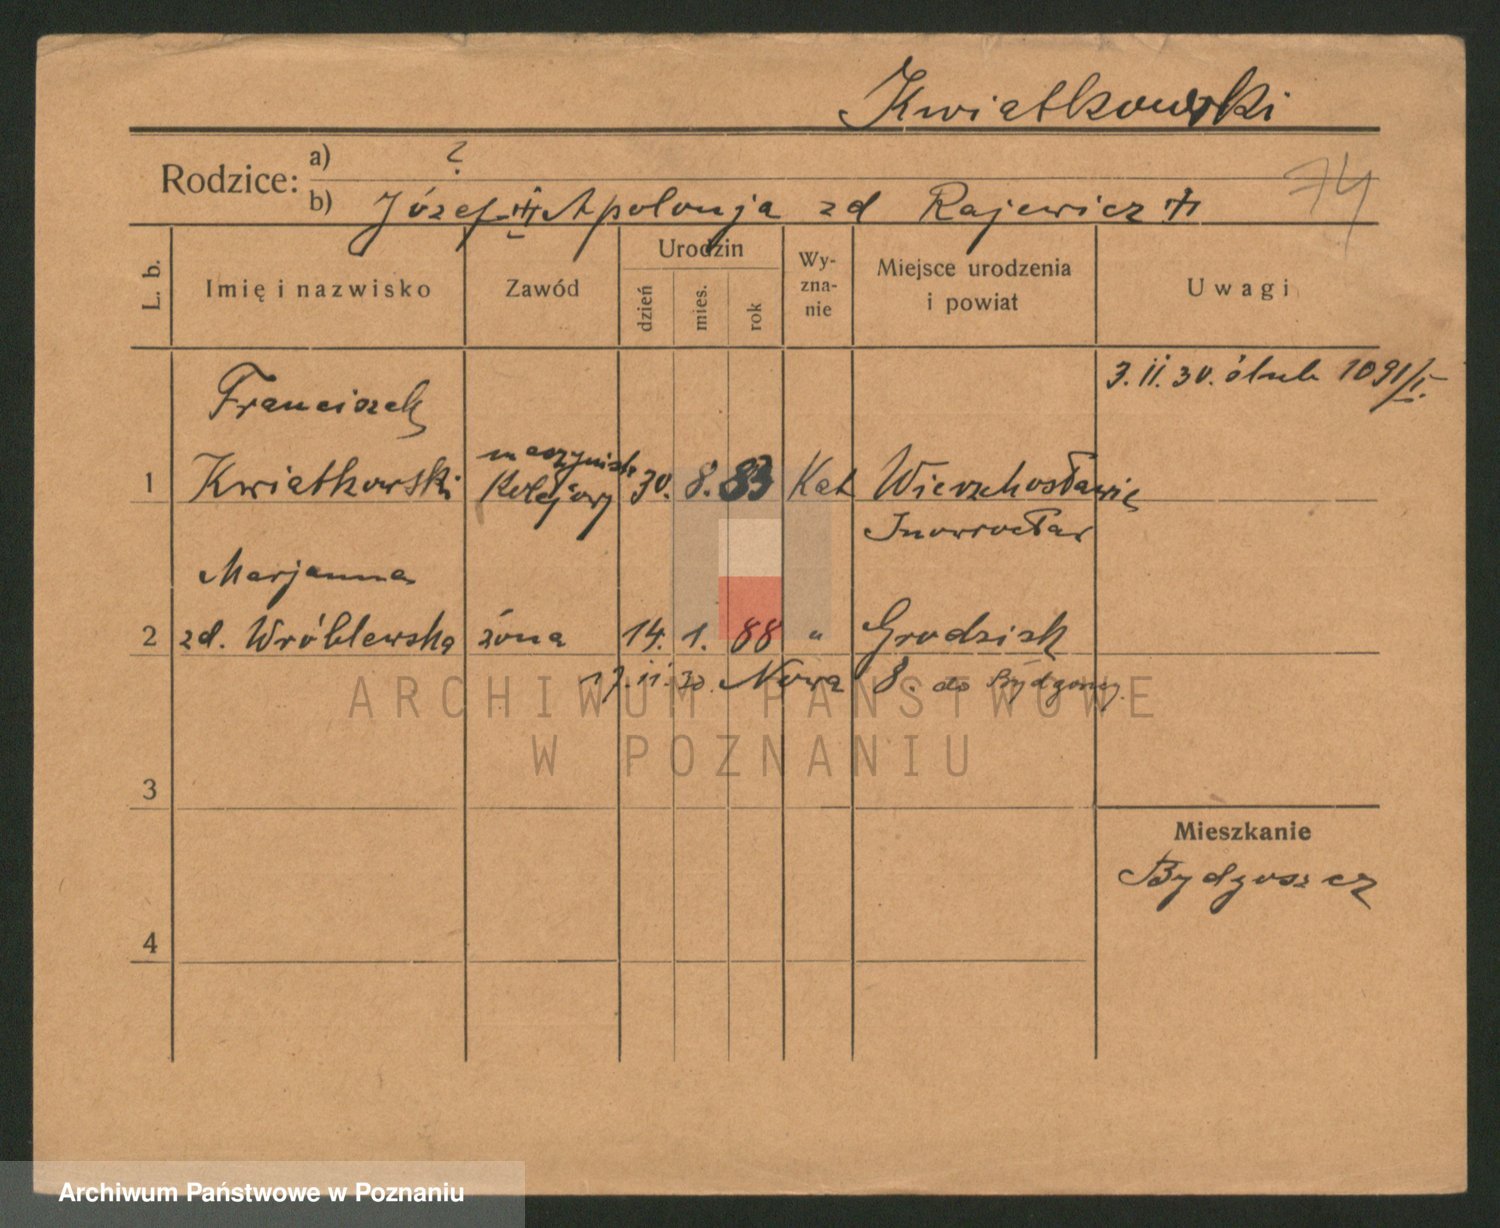 Kwiatkowski
Rodzice: a) ?
b) Józef Apolonja zd Rajewicz
74
L. b. Imię i nazwisko Zawód Urodzin dzień mies. rok Wy-zna-nie Miejsce urodzenia i powiat Uwagi
3.II.30. ślub 1091/I.
Franciszek
1 Kwiatkowski maszynista kolejowy 30. 8. 83 Kat Wierzchosławice
Inowrocław
Marjanna
2 zd. Wróblewska żona 14. 1. 88 " Grodzisk
17.II.30. Nowa 8. do Bydgoszcz
ARCHIWUM PAŃSTWOWE
W POZNANIU
3
Mieszkanie
Bydgoszcz
4
Archiwum Państwowe w Poznaniu